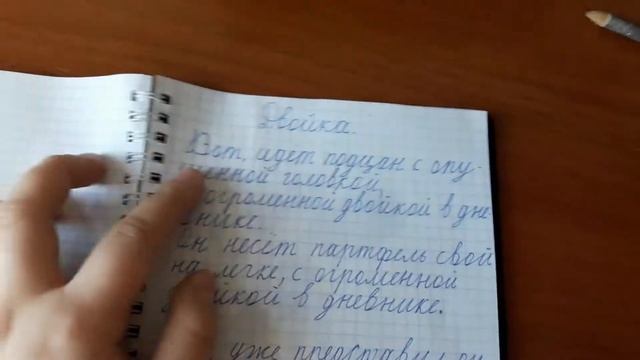 Двойка.
Вот, идет подцан с опу-
щенной головкой,
огроменной двойкой в дне-
внике.
Он несёт партфель свой
на легке, с огроменной
двойкой в дневнике.
уже представил он